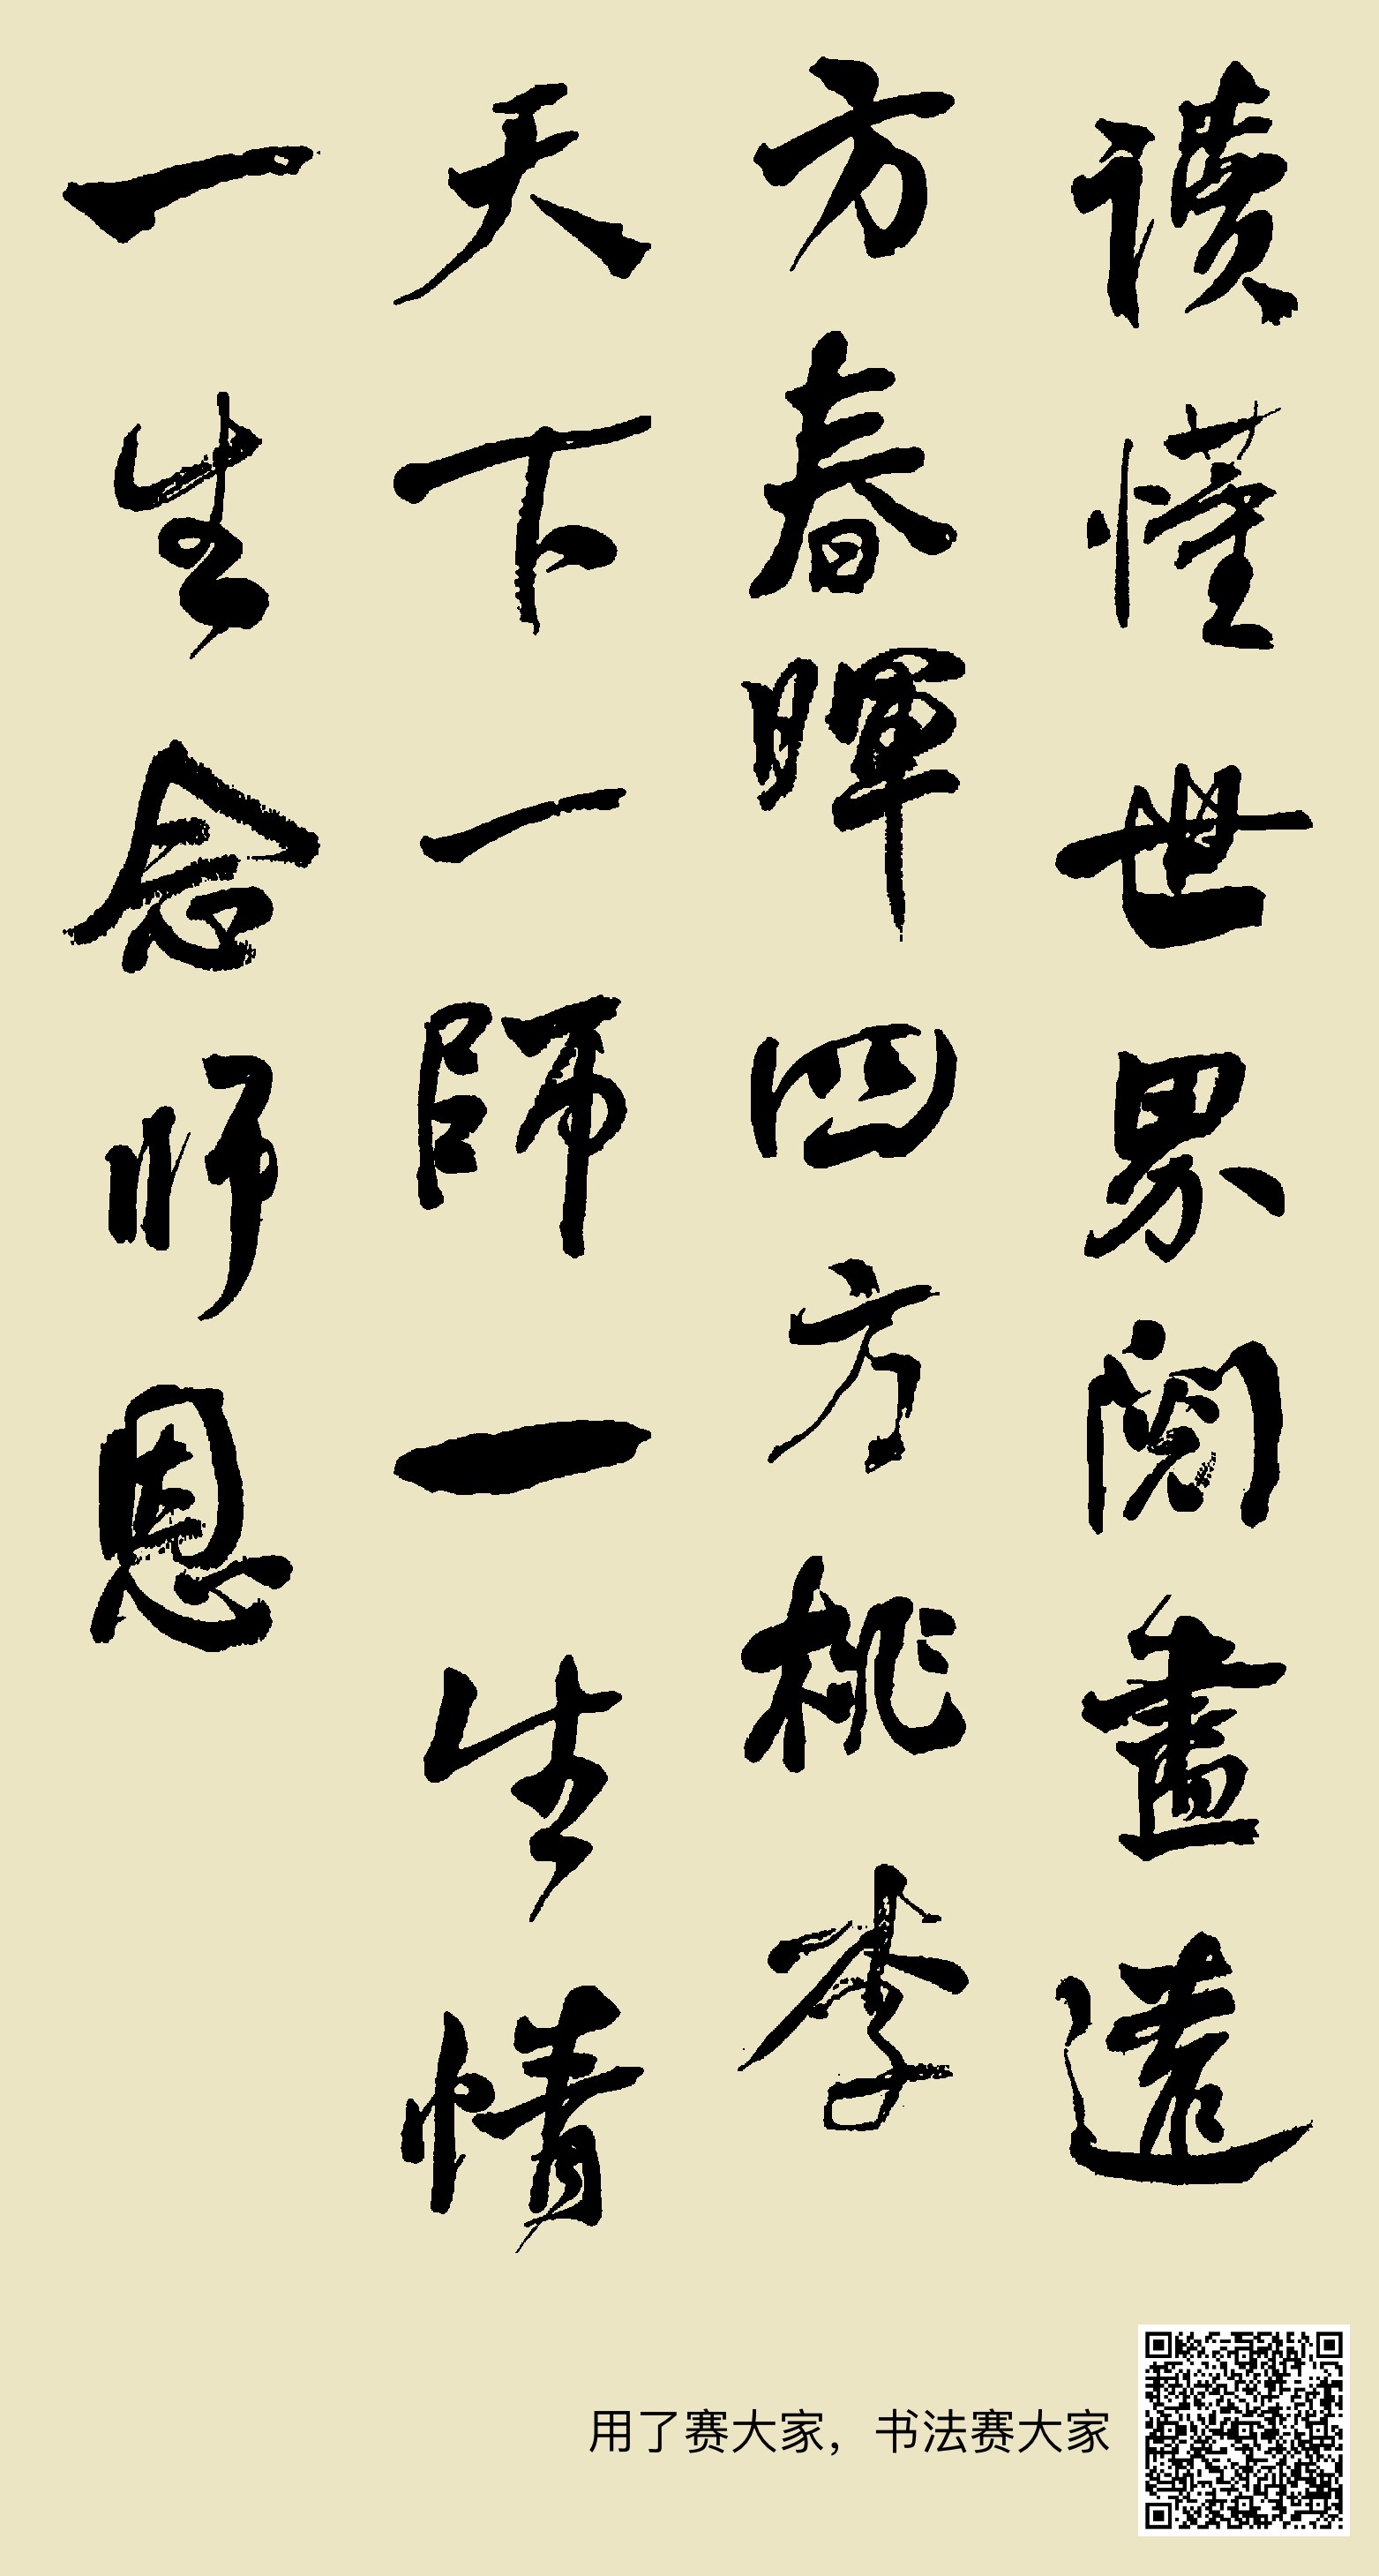 讀懂世界閱盡遠
方春暉四方桃李
天下一師一生情
一生念师恩
用了赛大家，书法赛大家